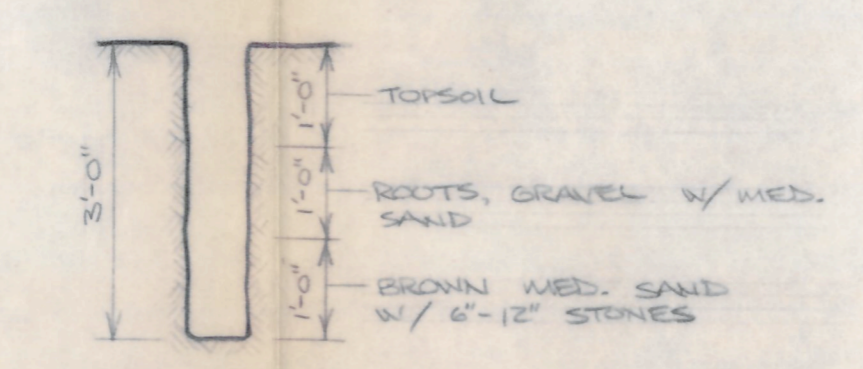 3'-0"
1'-0"
TOPSOIL
1'-0"
ROOTS, GRAVEL W/ MED.
SAND
1'-0"
BROWN MED. SAND
W/ 6"-12" STONES